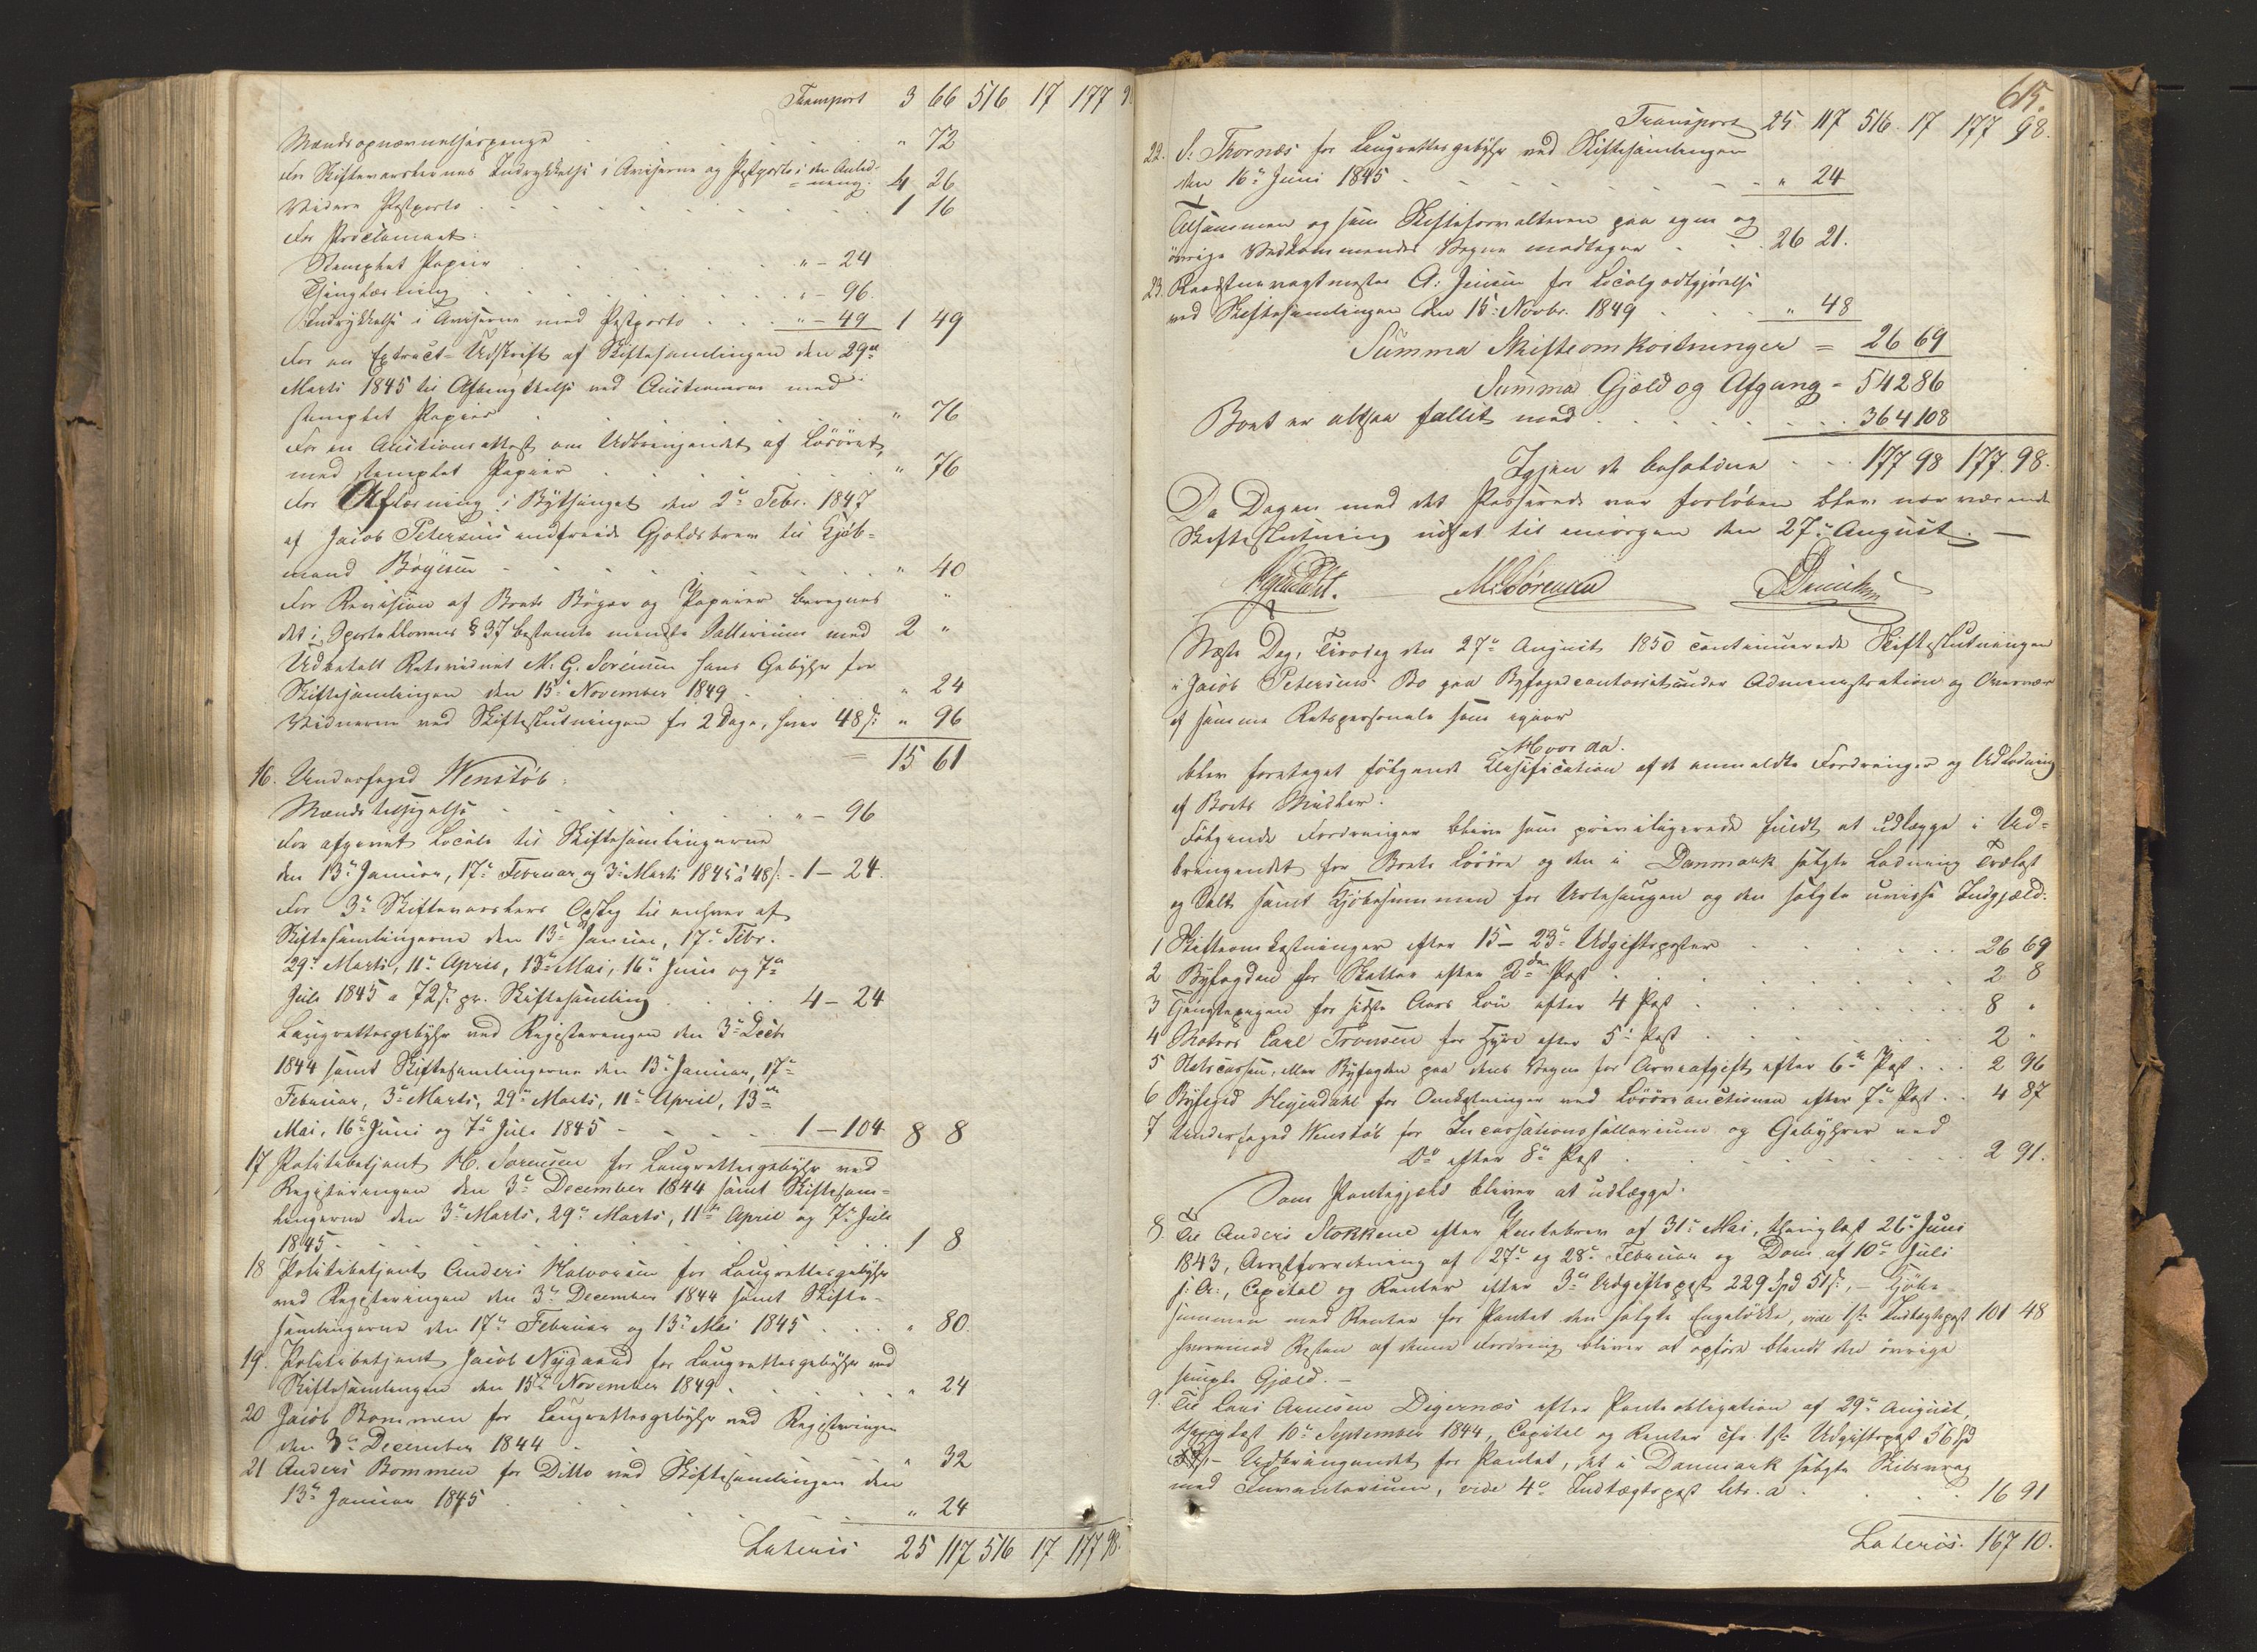 Transport 3 66 516 17 177 9
Mandsopnævnelsespenge " 72
For Skiftevarslernes Indrykkelse i Aviserne og Postporto i den Anled-
ning. 4 26
Videre Postporto 1 16
For Proclamaet:
Stemplet Papiir " - 24
Thinglæsning " - 96
Indrykkelse i Aviserne med Postporto " - 49 1 49
For en Extract-Udskrift af Skiftesamlingen den 29de
Marts 1845 til Afbenyttelse ved Auctionerne med
stemplet Papiir " 76
For en Auctionsattest om Udbringendet af Løsøret,
med stemplet Papiir " 76
For Aflæsning i Bythinget den 2de Febr. 1847
af Jacob Petersens indfriede Gjeldsbrev til Kjøb-
mand Bøyesen " 40
For Revision af Boets Bøger og Papirer beregnes "
det i Sportellovens § 37 bestemte mindste Sallarium med 2 "
Udbetalt Retsvidnet M. G. Sørensen hans Gebyhr for
Skiftesamlingen den 15de November 1849 " 24
Vidnerne ved Skifteslutningen for 2 Dage, hver 48 s: " 96
= 15 61
16. Underfoged Wenstøb:
Mænds tilsigelse " - 96
For afgivet Locale til Skiftesamlingerne
den 13de Januar, 17de Februar og 3de Marts 1845 a 48 s. - 1 - 24.
For 3de Skiftevarslers Opslag til enhver af
Skiftesamlingerne den 13de Januar, 17de Febr.
29de Marts, 11te April, 13de Mai, 16de Juni og 7de
Juli 1845 a 72 s. pr. Skiftesamling 4 - 24
Laugrettesgebyhr ved Registeringen den 3de Decb
1844 samt Skiftesamlingerne den 13de Januar, 17de
Februar, 3de Marts, 29de Marts, 11te April, 13de
Mai, 16de Juni og 7de Juli 1845 1 - 104 8 8
17 Politibetjent H. Sørensen for Laugrettesgebyhr ved
Registeringen den 3de December 1844 samt Skiftesam-
lingerne den 3de Marts, 29de Marts, 11te April og 7de Juli
1845 1 8
18 Politibetjent Anders Halvorsen for Laugrettesgebyhr
ved Registeringen den 3de December 1844 samt Skifte-
samlingerne den 17de Februar og 13de Mai 1845 " 80.
19. Politibetjent Jacob Nygaard for Laugrettesgebyhr ved
Skiftesamlingen den 15de November 1849 " 24
20 Jacob Bommen for Laugrettesgebyhr ved Registeringen
den 3de December 1844 " 32
21 Anders Bommen for Ditto ved Skiftesamlingen den
13de Januar 1845 " 24
Lateris 25 117 516 17 177 98.
615.
Transport 25 117 516 17 177 98.
22. S: Thornæs for Laugrettesgebyhr ved Skiftesamlingen
den 16de Juni 1845 " 24
Tilsammen og som Skifteforvalteren paa egne og
øvrige Vedkommendes Vegne modtager 26 21.
23. Raadstuevagtmester A: Jensen for Localgodtgjørelse
ved Skiftesamlingen den 15de Novbr. 1849 " 48
Summa Skifteomkostninger = 26 69
Summa Gjæld og Afgang = 542 86
Boet er altsaa fallit med 364 108
Igjen de beholdne 177 98 177 98.
Da Dagen med det Passerede var forløben blev nærværende
Skifteslutning udsat til imorgen den 27de August. —
M. Sørensen
Næste Dag, Tirsdag den 27de August 1850 continuerede Skifteslutningen
i Jacob Petersens Bo paa Byfogedcontoiret under Administration og Overvær
af samme Retspersonale som igaar
Hvorda.
blev foretaget følgende Classification af de anmeldte Fordringer og Udlodning
af Boets Midler.
Følgende Fordringer blive som priviligerede fuldt at udlægge i Ud-
bringendet for Boets Løsøre og den i Danmark solgte Ladning Trælast
og Salt samt Kjøbesummen for Urtehaugen og den solgte uvisse Indgjæld:
1 Skifteomkostninger efter 15 - 23de Udgiftsposter 26 69
2 Byfogden for Skatter efter 2den Post 2 8
3 Tjenstepigen for sidste Aars Løn efter 4 Post 8 "
4 Matros Carl Tronsen for Hyre efter 5te Post 2 "
5 Statscassen, eller Byfogden paa dens Vegne for Arveafgift efter 6te Post 2 96
6 Byfoged Heyerdahl for Omkostninger ved Løsøreauctionen efter 7de Post 4 87
7 Underfoged Wenstøb for Incassationssallarium og Gebyhrer ved
Do efter 8de Post 2 91.
Som Pantegjæld bliver at udlægge.
8. Til Anders Stokkene efter Pantebrev af 31te Mai, thinglæst 26de Juni
1843, Arrestforretning af 27de og 28de Februar og Dom af 10de Juli
s: A:, Capital og Renter efter 3de Udgiftspost 229 Spd 51 s:, — Kjøbe-
summen med Renter for Pantet den solgte Engeløkke, vide 1ste Indtægtspost 101 48
hvorimod Resten af denne Fordring bliver at opføre blandt den øvrige
simple Gjæld. —
9. Til Lars Arnesen Digernæs efter Panteobligation af 29de August,
thinglæst 10de September 1844, Capital og Renter cfr. 1ste Udgiftspost 56 Spd
— Udbringendet for Pantet, det i Danmark solgte Skibsvrag
med Inventarium, vide 4de Indtægtspost litr. a 16 91
Lateris. 167 10.